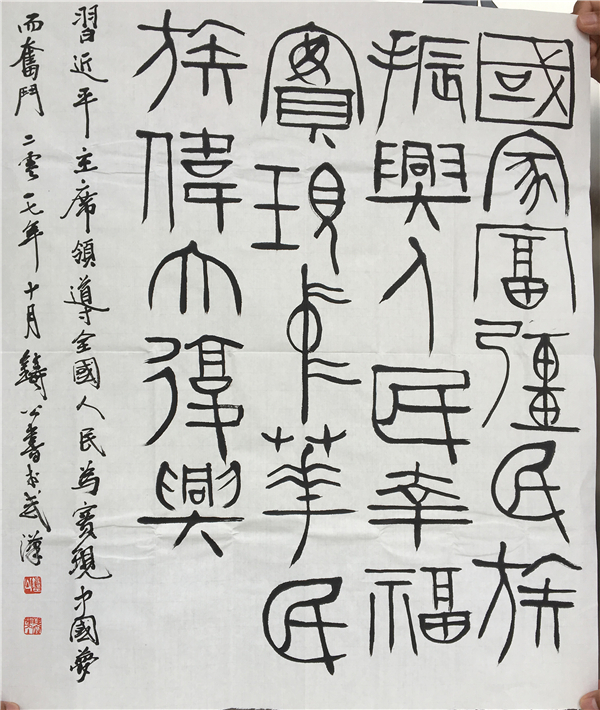 國家富彊民族
振興人民幸福
實現中華民
族偉大復興
習近平主席領導全國人民為實現中國夢
而奮鬥 二零一七年十月 鑄公書於武漢